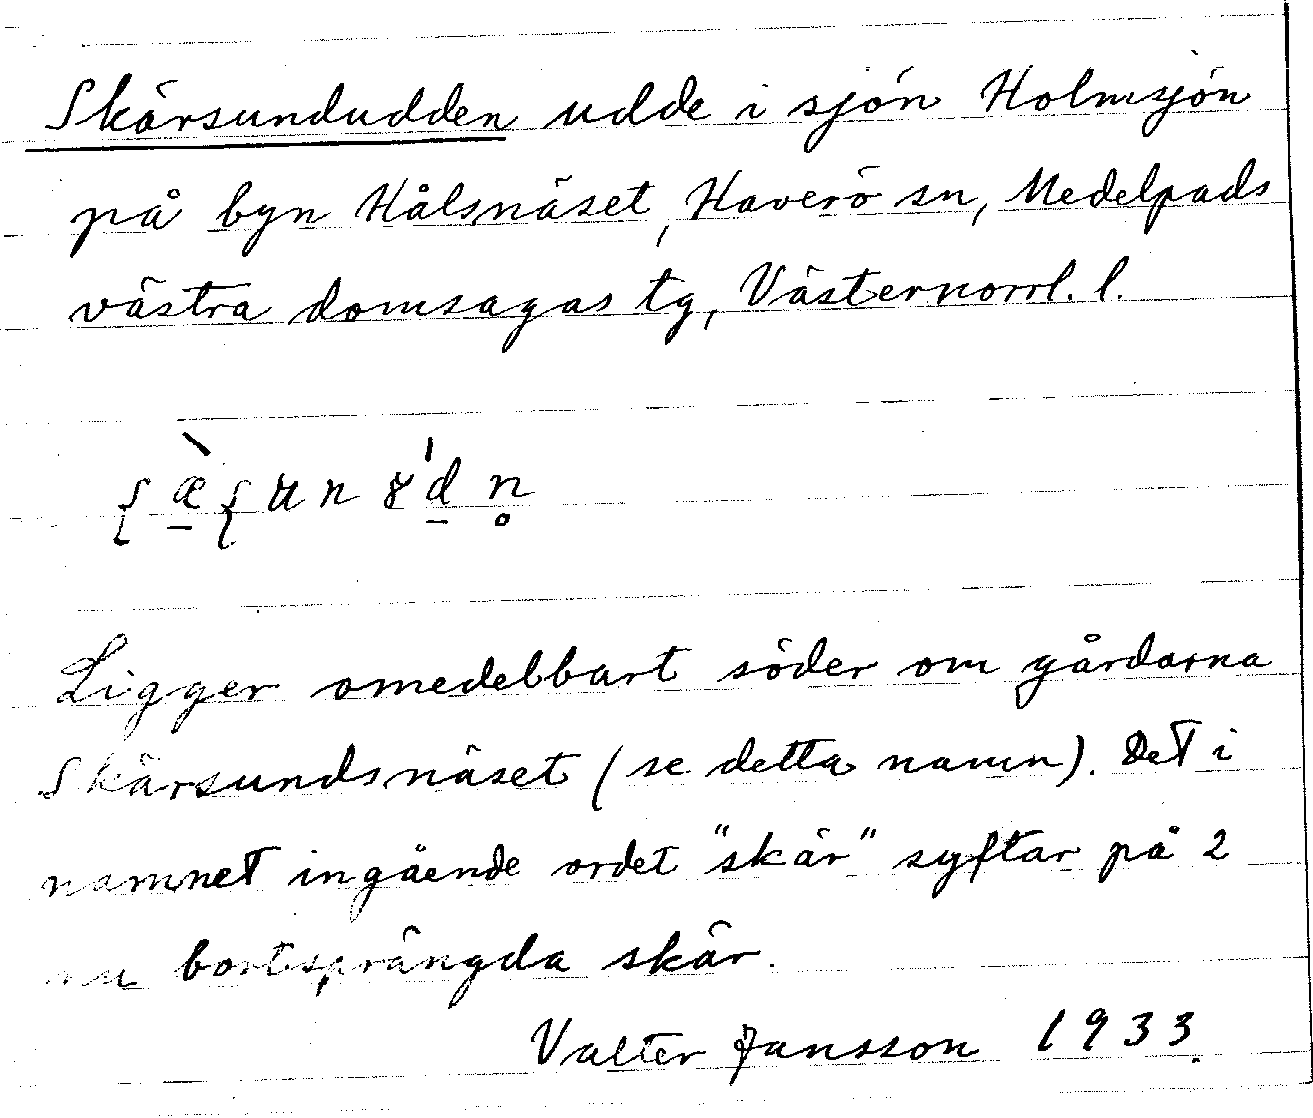 Skärsundudden udde i sjön Holmsjön
på byn Hålsnäset, Haverö sn, Medelpads
västra domsagas tg, Västernorrl. l.
Ligger omedelbbart söder om gårdarna
Skärsundsnäset (se detta namn). Det i
namnet ingående ordet "skär" syftar på 2
nu bortsprängda skär.
Valter Jansson 1933.